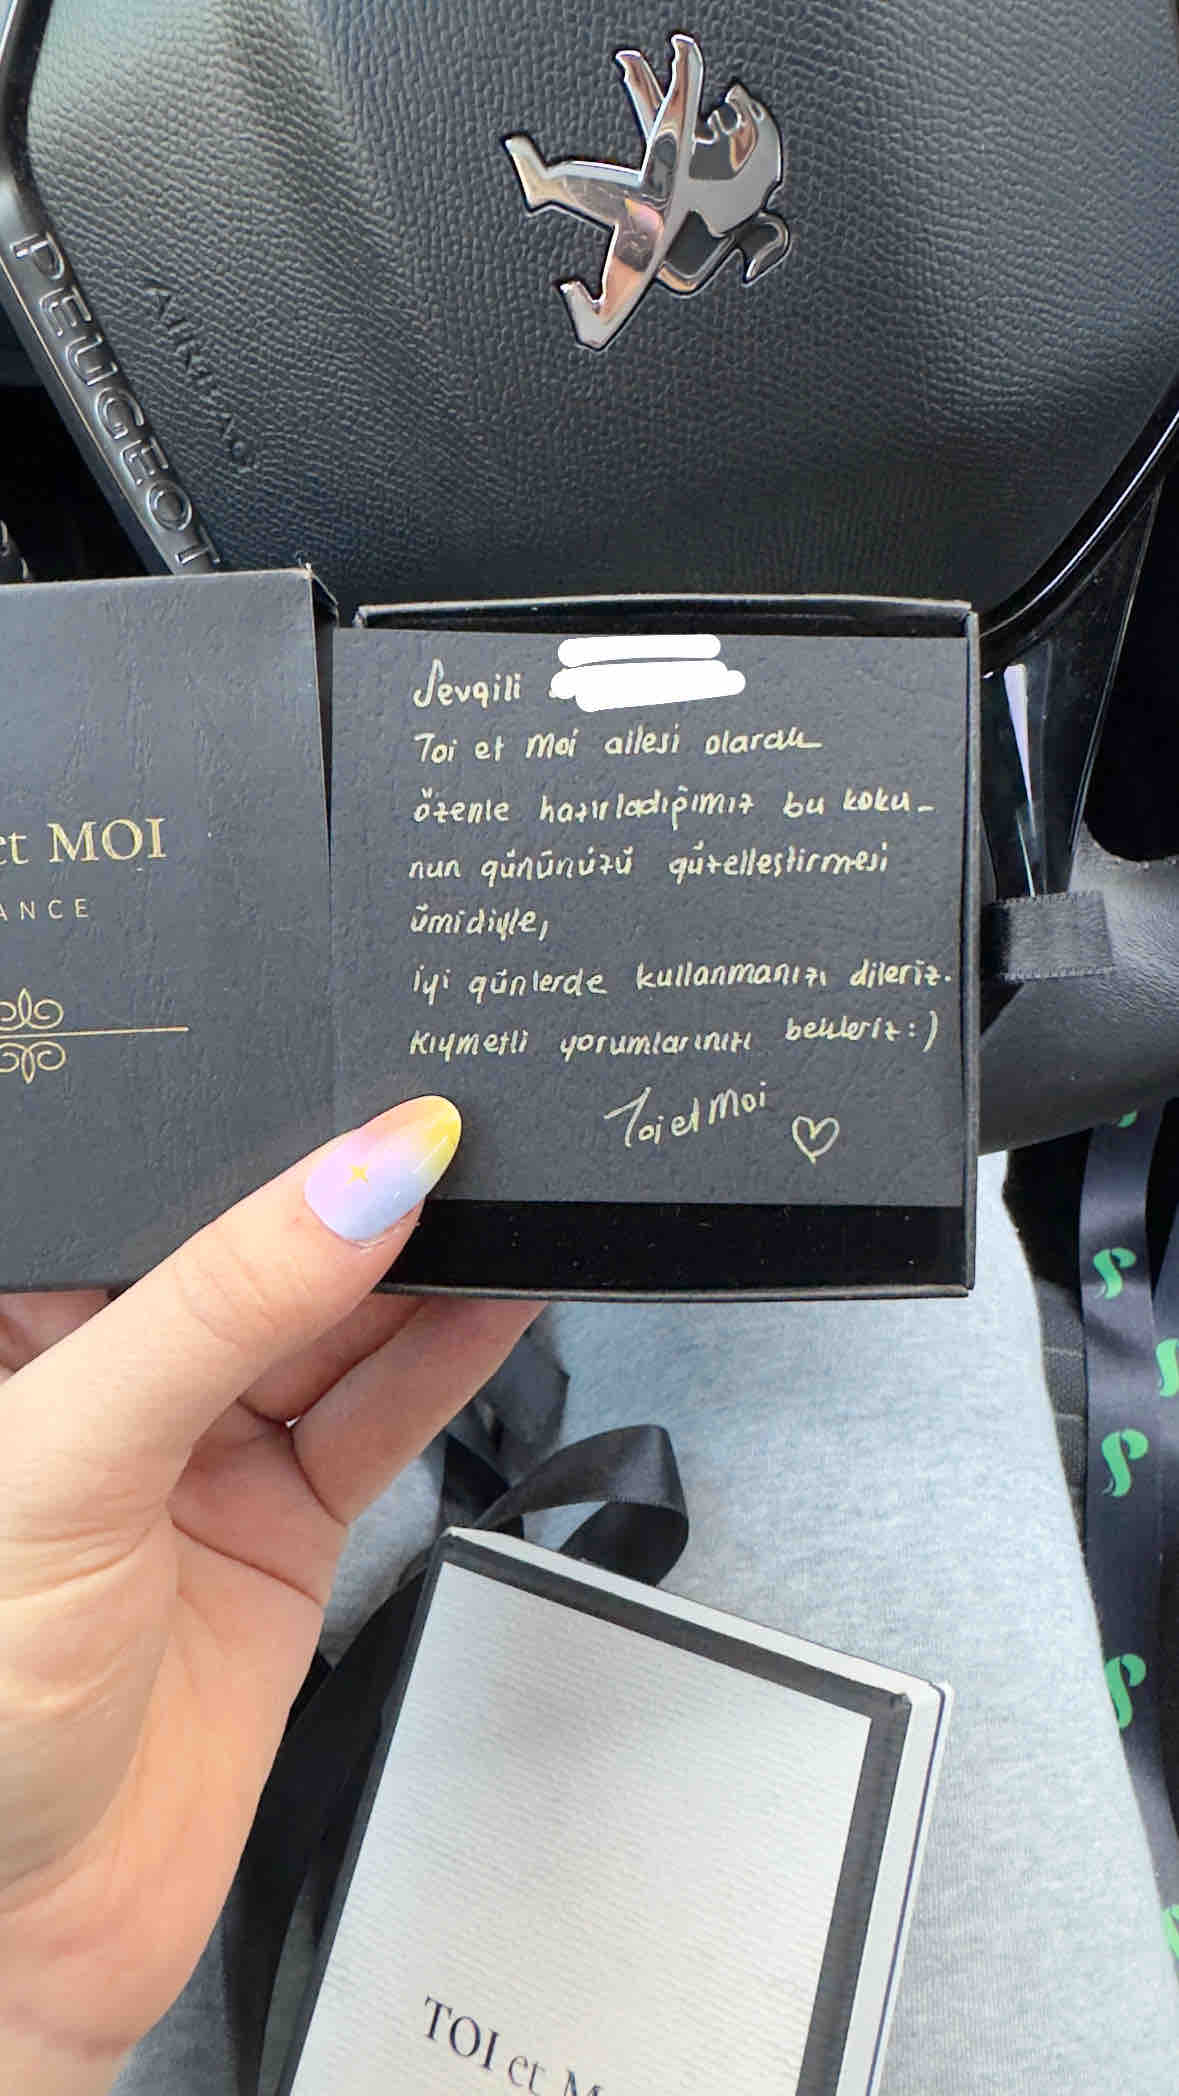 PEUGEOT
AIRBAG
et MOI
ANCE
Sevgili
Toi et Moi ailesi olarak
özenle hazırladığımız bu koku-
nun gününüzü güzelleştirmesi
ümidiyle,
iyi günlerde kullanmanızı dileriz.
Kıymetli yorumlarınızı bekleriz :)
Toi et Moi ♡
TOI et M